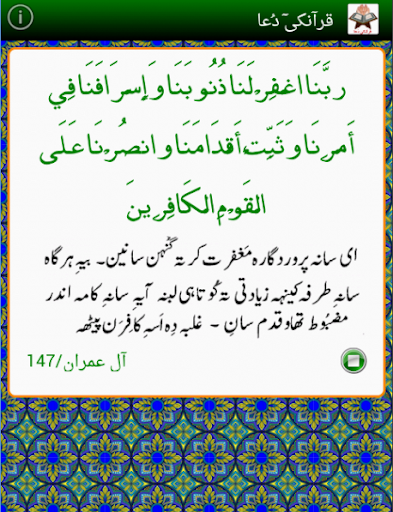 قرآنکیٓ دُعا
ربَّنَا اغفِرۡ لَنَا ذُنُوبَنَا وَإِسرَافَنَا فِي
أَمرِنَا وَثَبِّتۡ أَقدَامَنَا وانصُرۡنَا عَلَى
القَوۡمِ الكَافِرِينَ
ای سانہ پروردگارہ مَغفرت کر تہٕ گُنہن سانین۔ بیہِ ہرگاہ
سانہِ طرفہ کینہہ زیادتی تہٕ کُوتاہی لبنہ آیہ سانہِ کامہ اندر
مضبُوط تھاو قدم سانِ ۔ غلبہ دِہ اَسہِ کافِرَن پیٹھہ
آل عمران/147